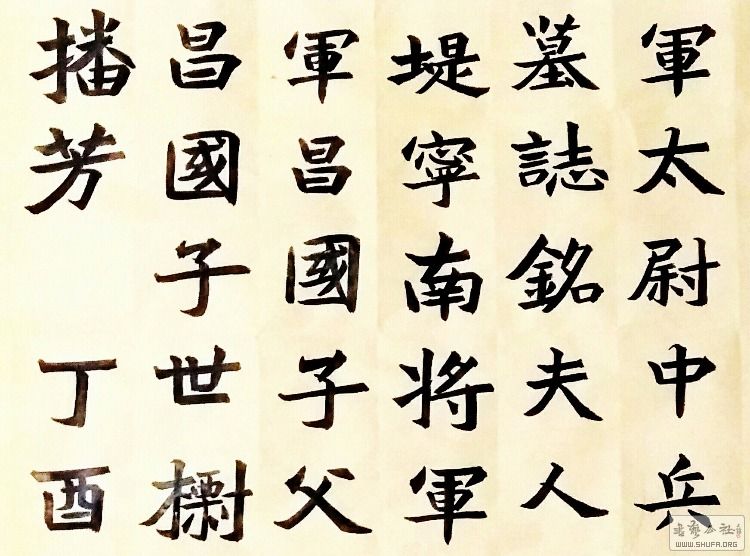 軍太尉中兵
墓誌銘夫人
堤寧南将軍
軍昌國子父
昌國子世
播芳 丁酉
WWW.SHUFA.ORG